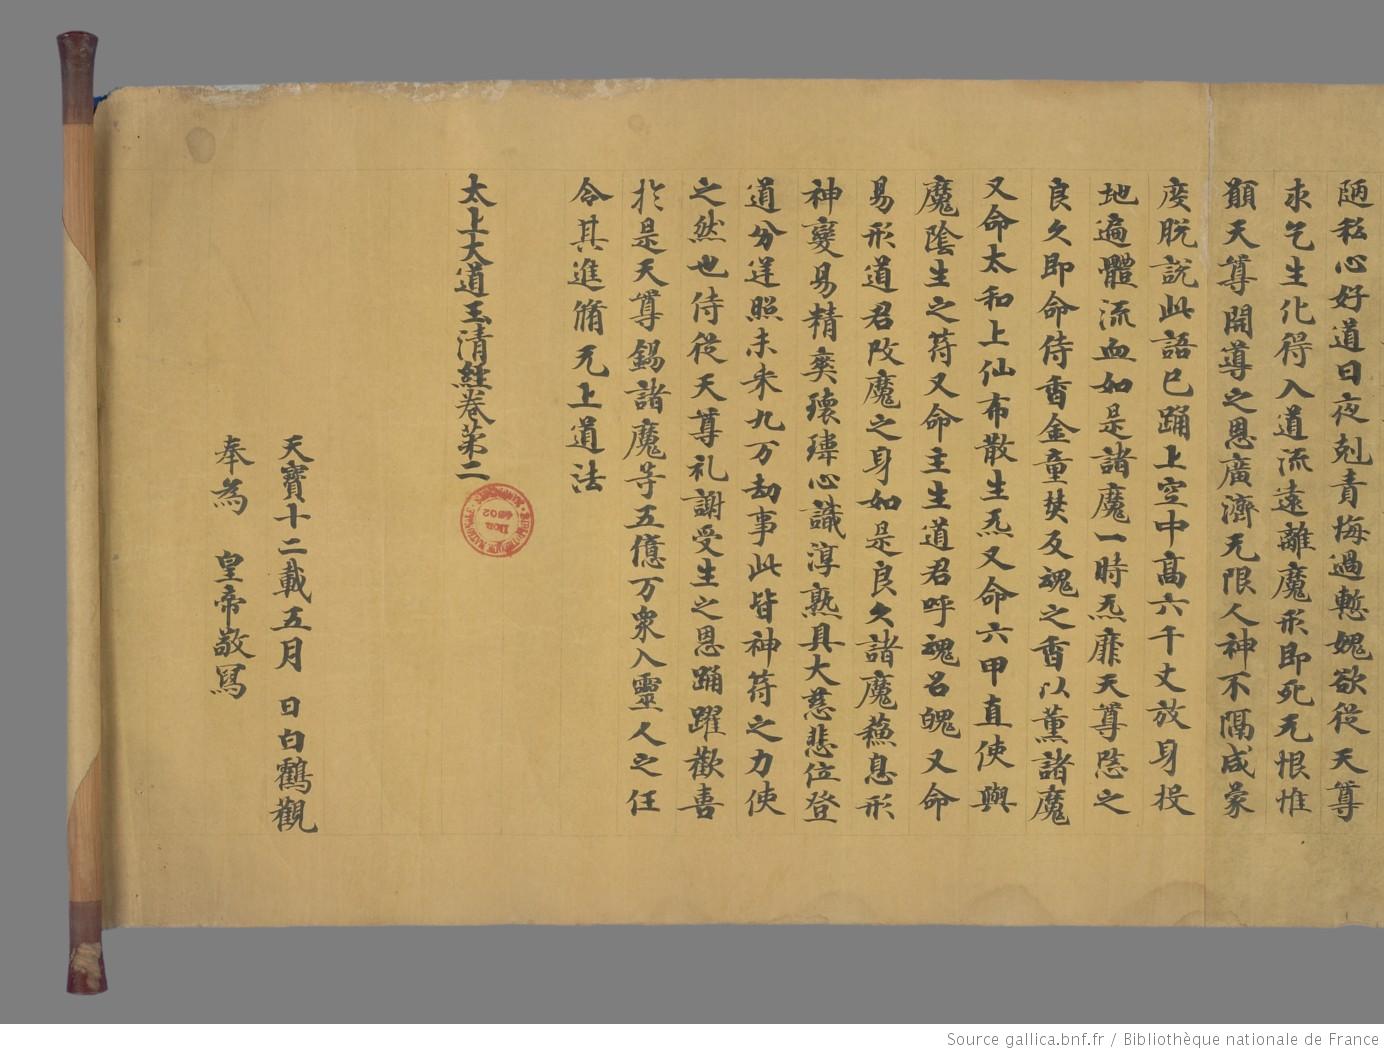 陋秐心好道日夜剋責悔過慙媿欲從天尊
求乞生化得入道流遠離魔形即死无恨惟
願天尊開導之恩廣濟无限人神不隔咸蒙
度脫說此語已踊上空中高六千丈放身投
地遍體流血如是諸魔一時炁靡天尊愍之
良久即命侍香金童焚反魂之香以薰諸魔
又命太和上仙布散生炁又命六甲直使與
魔陰生之符又命主生道君呼魂召魄又命
易形道君改魔之身如是良久諸魔蘓息形
神變易精爽瓌瑋心識淳熟具大慈悲位登
道分逆照未来九万劫事此皆神符之力使
之然也侍從天尊礼謝受生之恩踊躍歡喜
於是天尊錫諸魔等五億万衆入靈人之任
令其進脩无上道法
太上大道玉清經卷第二
天寶十二載五月 日白鶴觀
奉為 皇帝敬寫
Don 4502
Source gallica.bnf.fr / Bibliothèque nationale de France